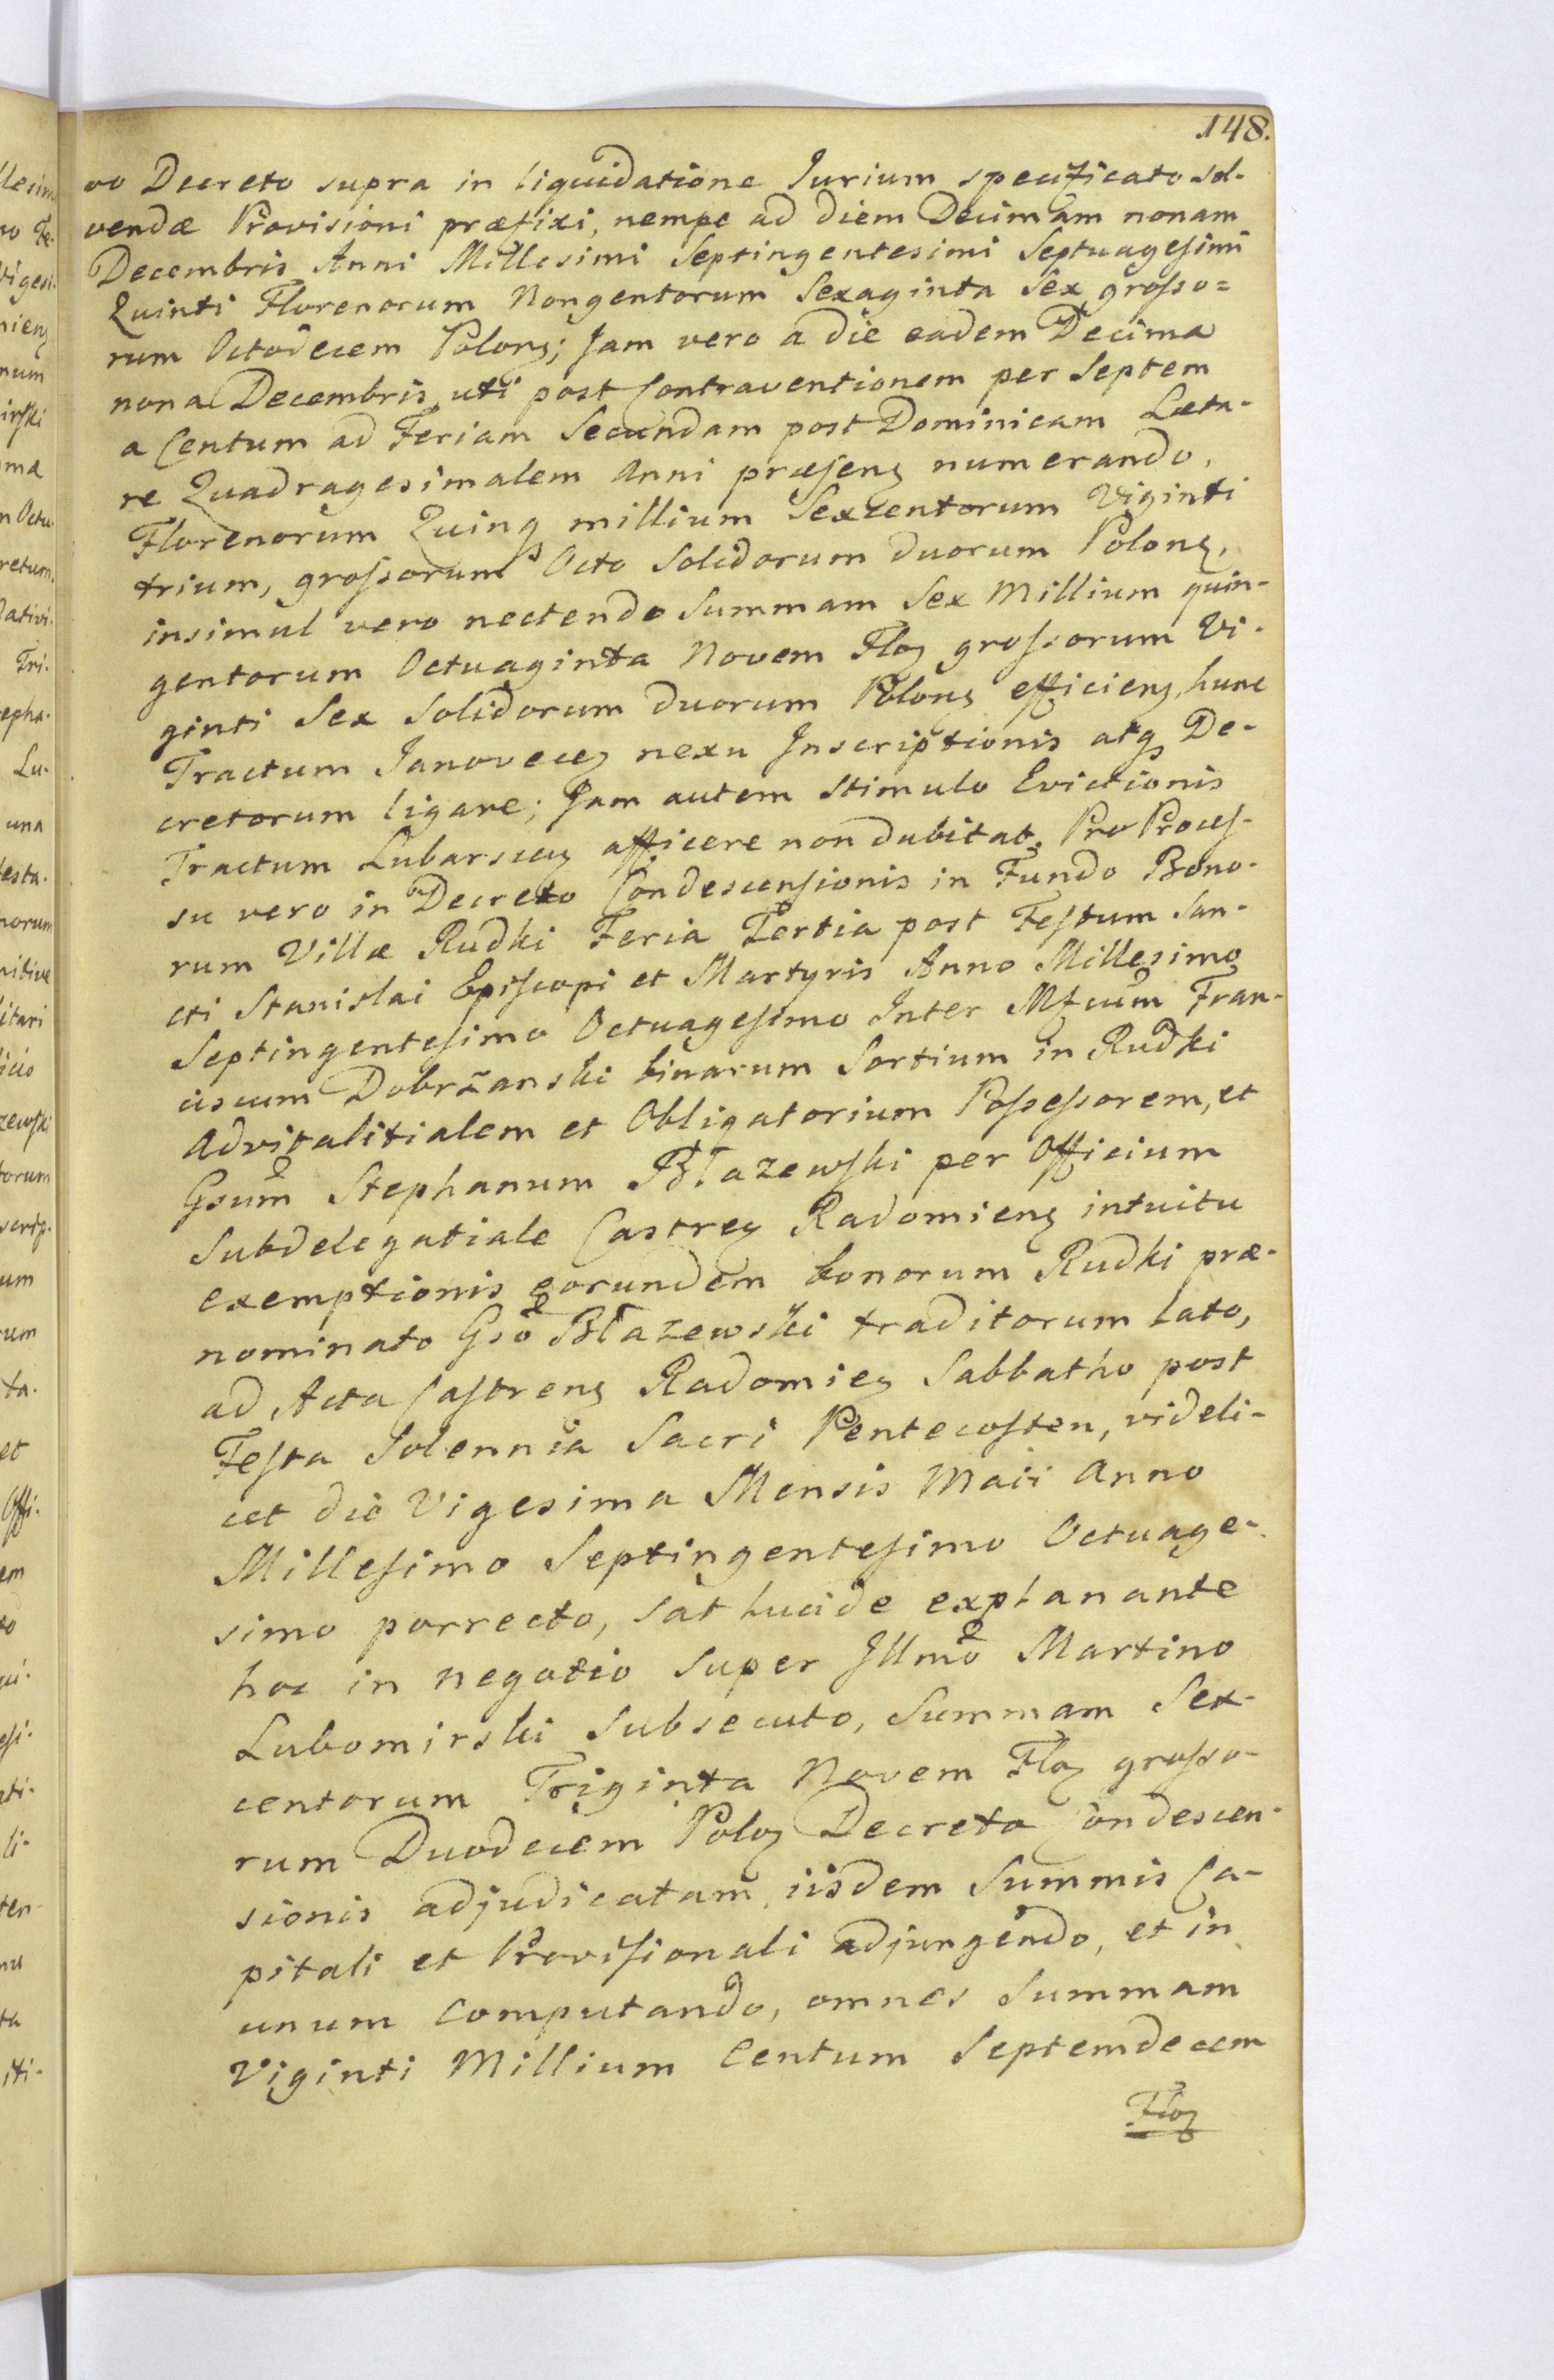 148.
vo Decreto supra in liquidatione Jurium specificato sol-
vendæ Provisioni præfixi, nempe ad diem Decimam nonam
Decembris Anni Millesimi Septingentesimi Septuagesimi
Quinti Florenorum Nongentorum Sexaginta Sex grosso=
rum Octodecem Polonꝫ; Jam vero a die eadem Decima
nona Decembris, uti post Contraventionem per Septem
a Centum ad Feriam Secundam post Dominicam Læta-
re Quadragesimalem Anni præsenꝫ numerando,
Florenorum Quinqꝫ millium Sexcentorum Viginti
trium, grossorum Octo Solidorum duorum Polonꝫ,
insimul vero nectendo Summam Sex Millium quin-
gentorum Octuaginta Novem Floꝫ grossorum Vi-
ginti Sex Solidorum duorum Polonꝫ efficienꝫ, hunc
Tractum Janoveceꝫ nexu Inscriptionis atqꝫ De-
cretorum ligare; Jam autem stimulo Evictionis
Tractum Lubarscenꝫ afficere non dubitat. Pro Proces-
su vero in Decreto Condescensionis in Fundo Bono-
rum Villæ Rudki Feria Tertia post Festum San-
cti Stanislai Episcopi et Martyris Anno Millesimo
Septingentesimo Octuagesimo Inter Mfcum Fran-
ciscum Dobrzanski binarum Sortium in Rudki
Advitalitialem et Obligatorium Possessorem, et
Gsum Stephanum Błazewski per Officium
Subdelegatiale Castreꝫ Radomienꝫ intuitu
exemptionis eorundem bonorum Rudki præ-
nominato Gso Błazewski traditorum lato,
ad Acta Castrenꝫ Radomieꝫ Sabbatho post
Festa Solennia Sacri Pentecosten, videli-
cet die Vigesima Mensis Maii Anno
Millesimo Septingentesimo Octuage-
simo porrecto, sat lucide explanante
hoc in negotio super Illmo Martino
Lubomirski subsecuto, Summam Sex-
centorum Triginta Novem Floꝫ grosso-
rum Duodecem Poloꝫ Decreto Condescen-
sionis adjudicatam, iisdem Summis Ca-
pitali et Provisionali adjungendo, et in
unum computando, omnes Summam
Viginti Millium Centum Septemdecem
Floꝫ